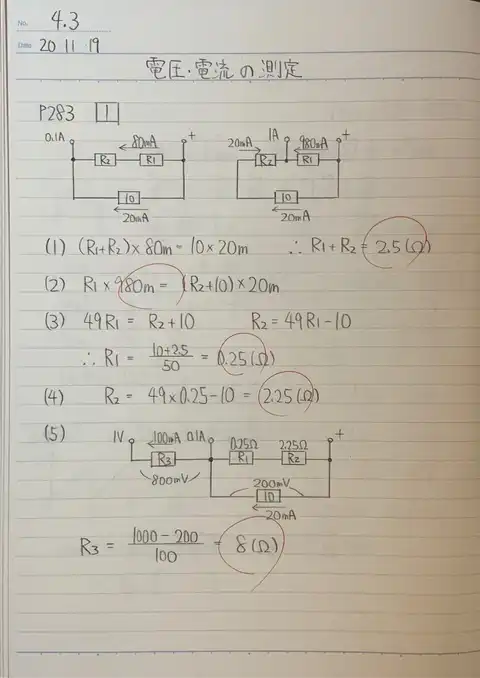 No. 4.3
Date 20 11 19
電圧・電流の測定
P283 1
0.1A 80mA +
R2 R1
10
20mA
20mA 1A 980mA +
R2 R1
10
20mA
(1) (R1+R2)×80m = 10×20m ∴ R1+R2 = 2.5(Ω)
(2) R1×980m = (R2+10)×20m
(3) 49R1 = R2+10 R2 = 49R1-10
∴ R1 = (10+2.5)/50 = 0.25(Ω)
(4) R2 = 49×0.25-10 = 2.25(Ω)
(5) 1V 100mA 0.1A 0.25Ω 2.25Ω +
R3 R1 R2
800mV 200mV
10
20mA
R3 = (1000-200)/100 = 8(Ω)